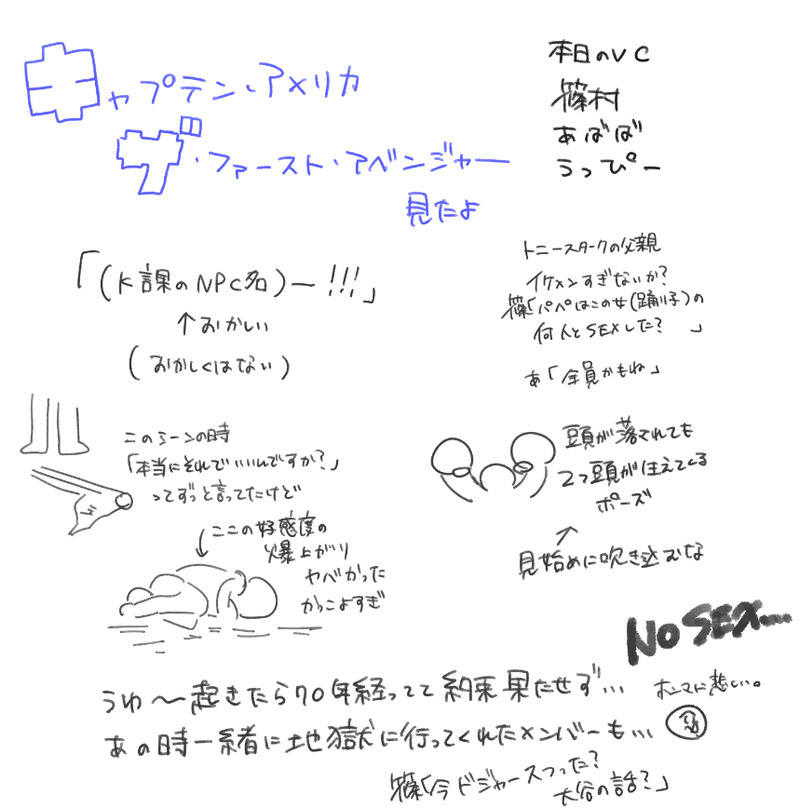 キャプテン・アメリカ
ザ・ファースト・アベンジャー
見たよ
本日のVC
篠村
あばば
うっぴー
「(K課のNPC名)ー!!!」
↑おかしい
(おかしくはない)
トニースタークの父親
イケメンすぎないか?
篠「パペはこの女(踊り子)の
何人とSEXした? 」
あ「全員かもね」
このシーンの時
「本当にそれでいいんですか?」
ってずっと言ってたけど
ここの好感度の
爆上がり
ヤバかった
かっこよすぎ
頭が落されても
2つ頭が生えてくる
ポーズ
見始めに吹き込むな
NO SEX...
うわ〜起きたら70年経ってて約束果たせず…
ホンマに悲しい。
あの時一緒に地獄に行ってくれたメンバーも…
篠「今ドジャースつった?
大谷の話?」